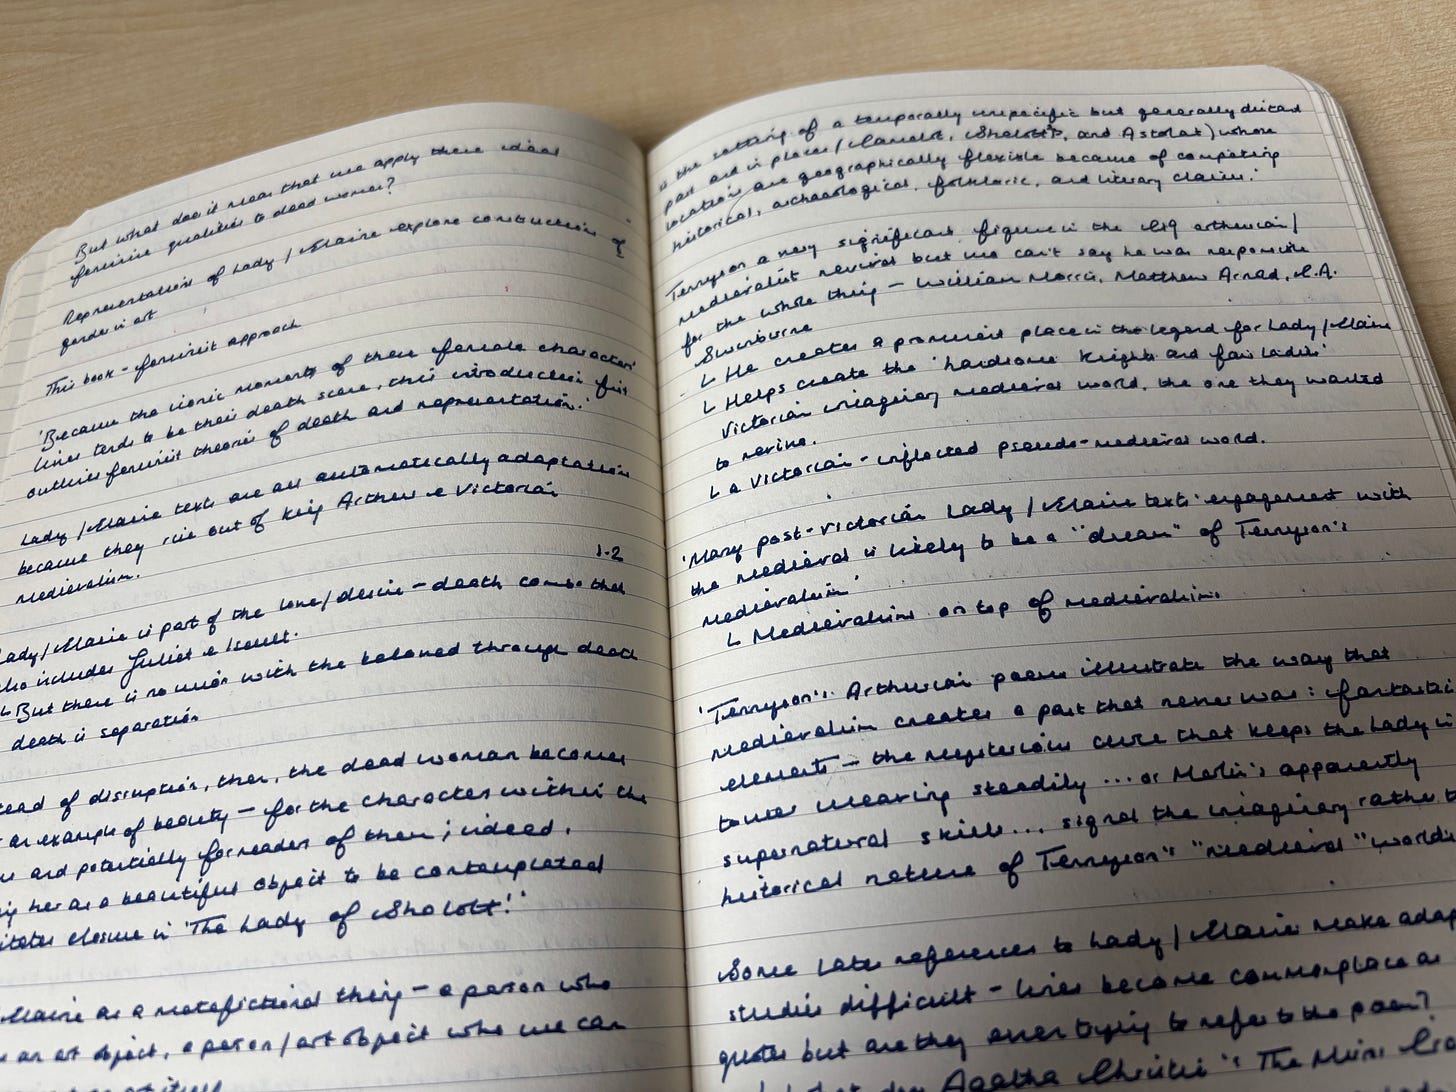 But what does it mean that we apply these ideal
feminine qualities to dead women?
Representations of Lady / Elaine explore constructions of
gender in art
This book - feminist approach
'Because the iconic moments of these female characters'
lives tends to be their death scene, this introduction first
outlines feminist theories of death and representation.'
Lady / Elaine texts are all automatically adaptations
because they rise out of King Arthur & Victorian
medievalism.
1-2
Lady / Elaine is part of the love / desire - death combo that
also includes Juliet & Iseult.
↳ But there is no union with the beloved through death
death is separation
tead of disruption, then, the dead woman becomes
an example of beauty - for the characters within the
and potentially for readers of them; indeed,
her as a beautiful object to be contemplated
closure in 'The Lady of Shalott'.'
Elaine as a metafictional thing - a person who
an art object, a person / art object who we can
is the setting of a temporally unspecific but generally distant
past and in places (Camelot, Shalott, and Astolat) whose
locations are geographically flexible because of competing
historical, archaeological, folkloric, and literary claims.'
Tennyson a very significant figure in the C19 arthurian /
medievalist revival but we can't say he was responsible
for the whole thing - William Morris, Matthew Arnold, C.A.
Swinburne
↳ He creates a prominent place in the legend for Lady / Elaine
↳ Helps create the 'handsome knights and fair ladies'
Victorian imaginary medieval world, the one they wanted
to revive.
↳ a Victorian-inflected pseudo-medieval world.
'Many post-Victorian Lady / Elaine texts' engagement with
the medieval is likely to be a "dream" of Tennyson's
medievalism'
↳ Medievalism on top of medievalism.
'Tennyson's Arthurian poems illustrate the way that
medievalism creates a past that never was: fantastic
elements - the mysterious curse that keeps the Lady in
tower weaving steadily ... or Merlin's apparently
supernatural skills... signal the imaginary rather t
historical nature of Tennyson's "medieval" world
Some later references to Lady / Elaine make adap
studies difficult - lines become commonplace as
quotes but are they even trying to refer to the poem?
Agatha Christie's The Mirror Cra